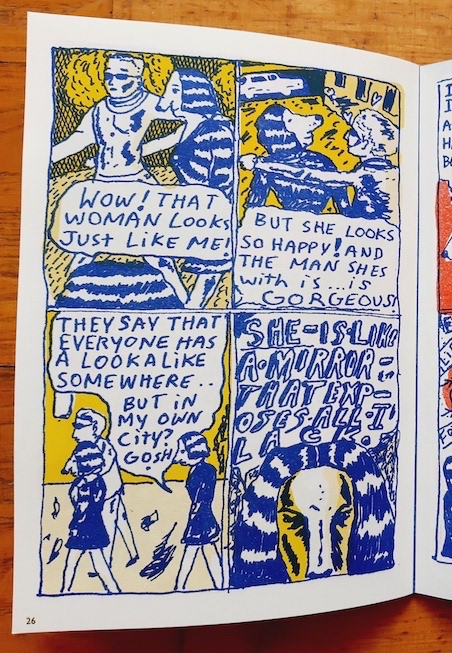 WOW! THAT
WOMAN LOOKS
JUST LIKE ME!
BUT SHE LOOKS
SO HAPPY! AND
THE MAN SHES
with is...is
GORGEOUS!
THEY SAY THAT
EVERYONE HAS
A LOOKALIKE
SOMEWHERE..
BUT iN
MY OWN
CiTY?
GOSH!
SHE-IS-LIKE
A-MIRROR-
THAT EXP-
OSES-ALL-I
LACK.
26